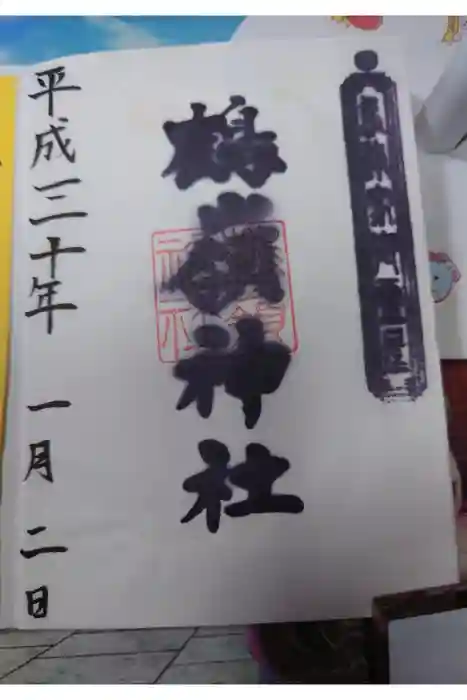 鶴嶺神社
平成三十年 一月二日